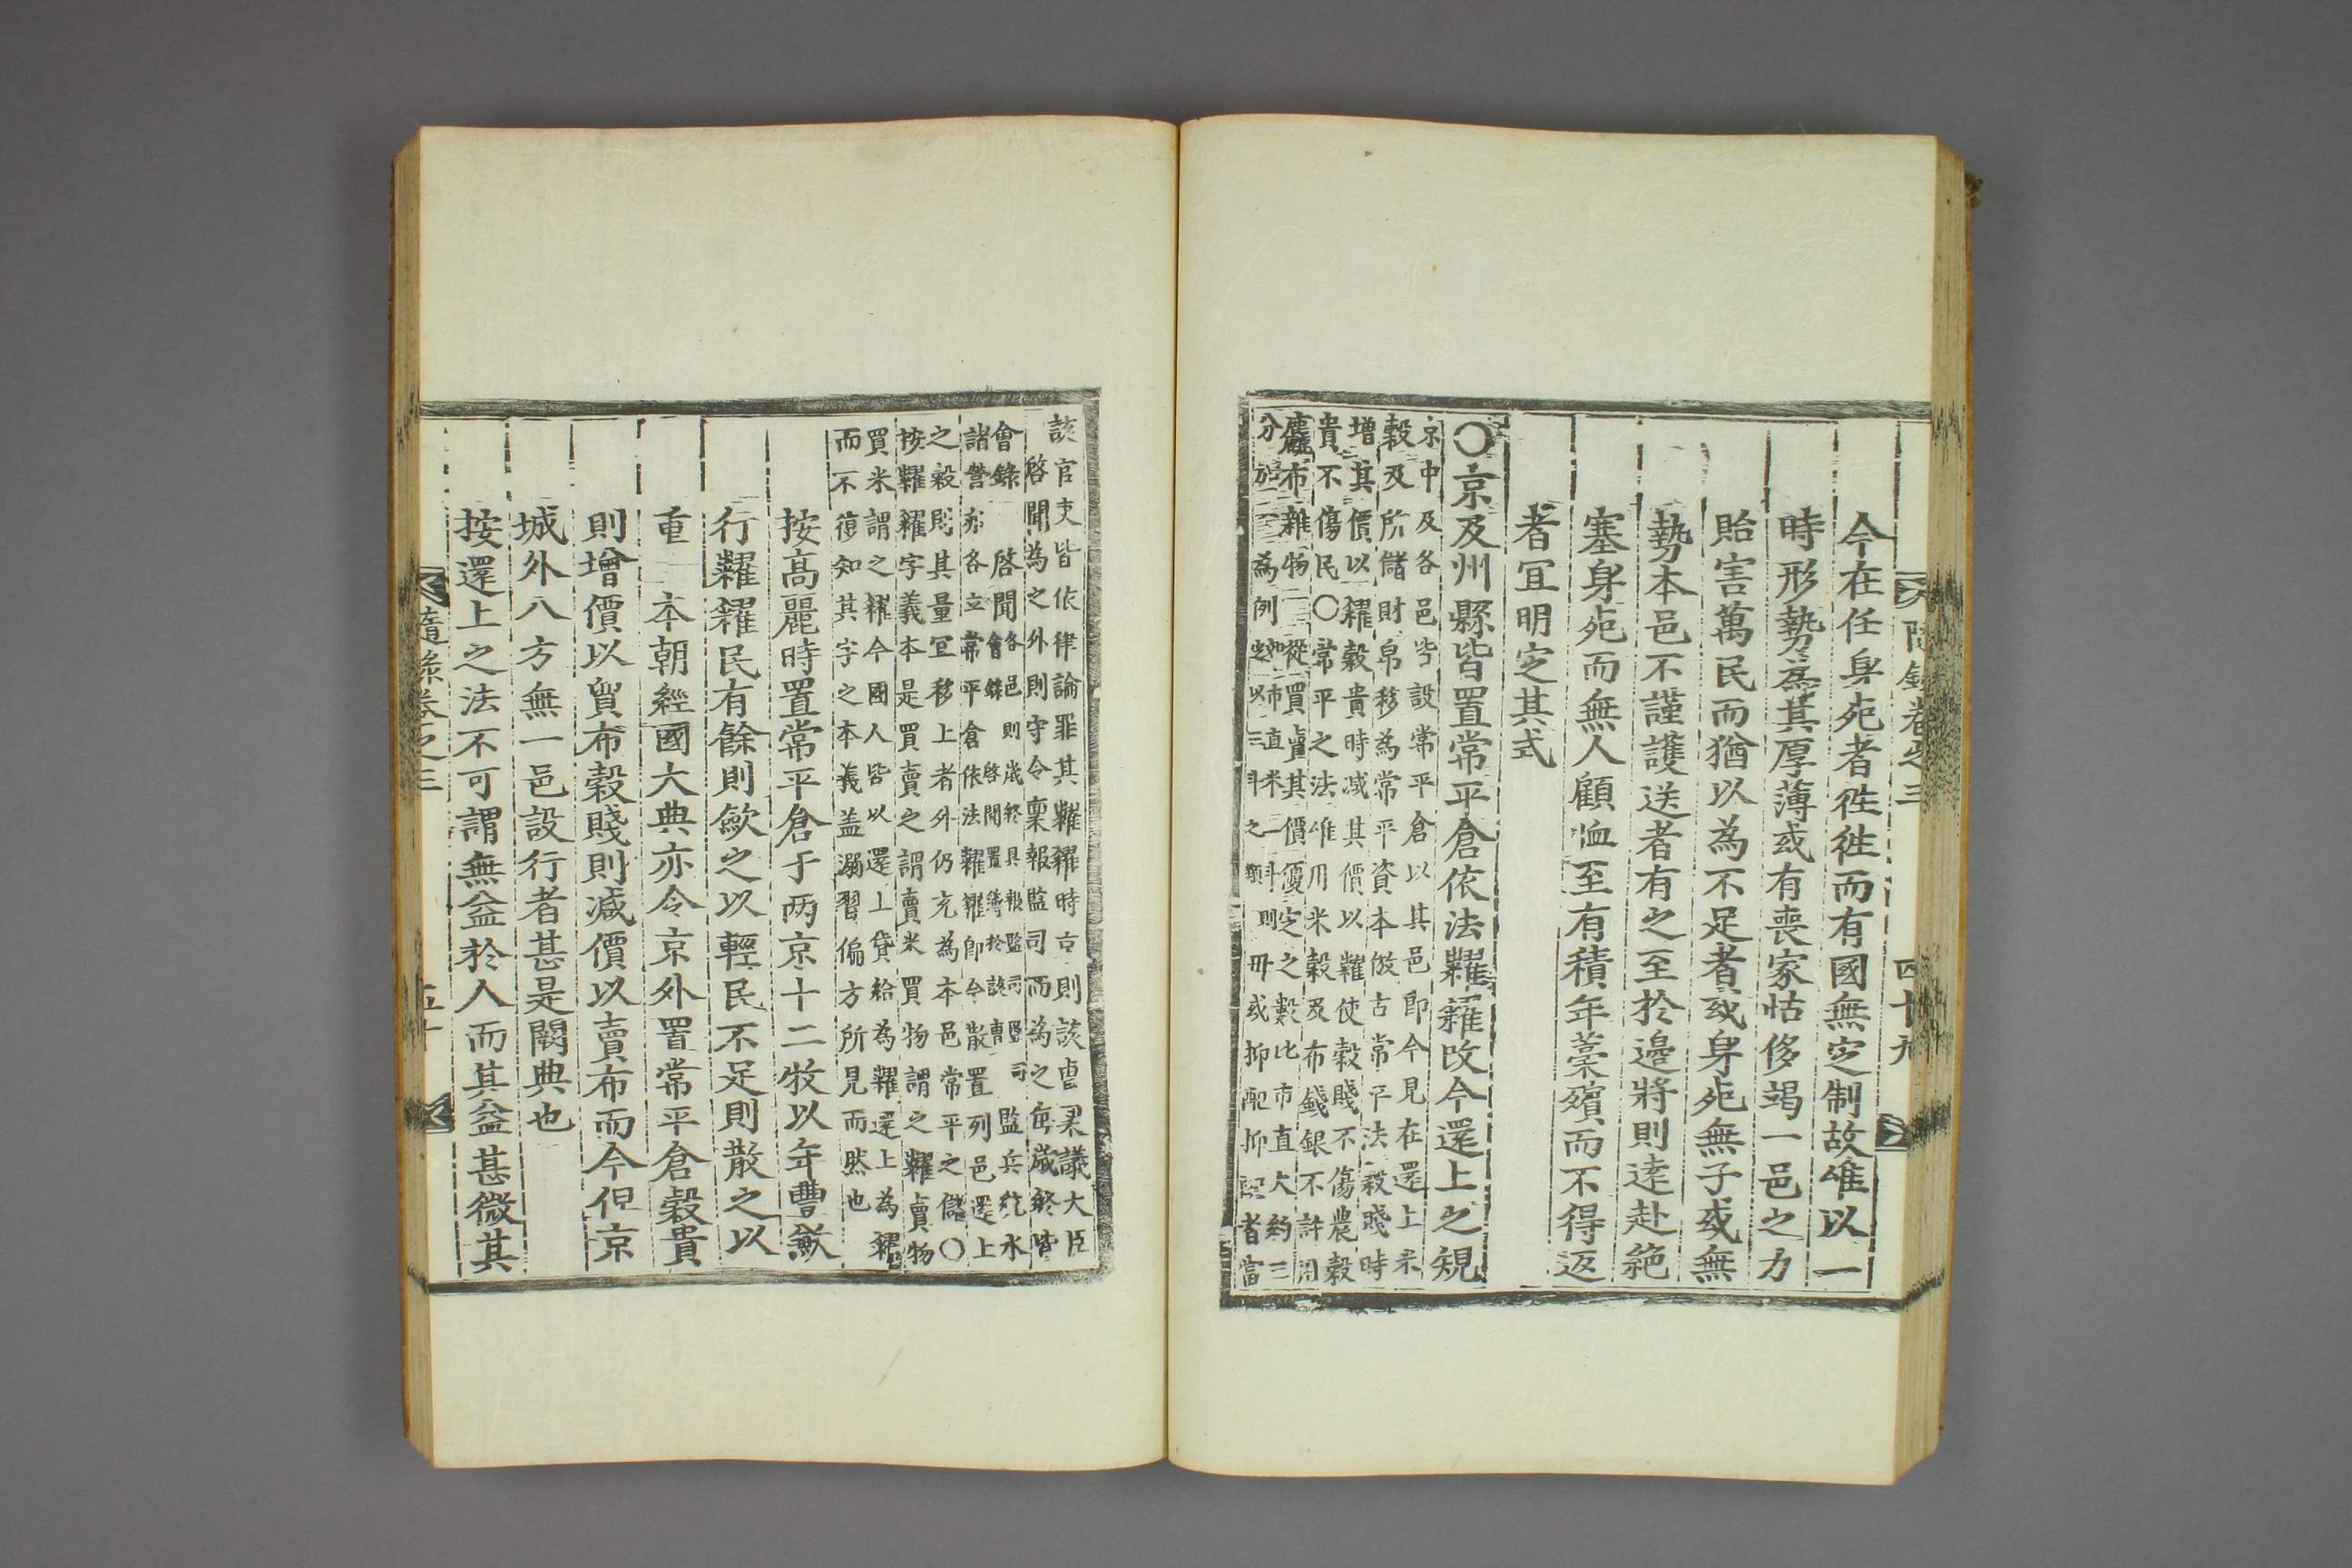 隨錄卷之三 四十九
今在任身死者徃徃而有國無定制故唯以一
時形勢爲其厚薄或有喪家怙侈竭一邑之力
貽害萬民而猶以為不足者或身死無子或無
勢本邑不謹護送者有之至於邊將則逺赴絶
塞身死而無人顧恤至有積年藁殯而不得返
者冝明定其式
〇京及州縣皆置常平倉依法糶糴改今還上之規
京中及各邑皆設常平倉以其邑即今見在還上米
穀及所儲財帛移為常平資本倣古常平法穀賤時
增其價以糴穀貴時减其價以糶使穀賤不傷農穀
貴不傷民〇常平之法唯用米穀及布錢銀不許用
麤布雜物一從買賣其價優定之數比市直大約三
分加一為例如市直米二斗則定以三斗之類毋或抑配抑配者當
該官吏皆依律論罪其糶糴時京則該曹稟議大臣
啓聞為之外則守令稟報監司而為之每歲終皆
會錄 啓聞各邑則歲終具報監司監司會錄啓聞置簿於該曹監兵統水
諸營亦各立常平倉依法糶糴即今散置列邑還上
之穀則其量冝移上者外仍充為本邑常平之儲〇
按糶糴字義本是買賣之謂賣米買物謂之糶賣物
買米謂之糴今國人皆以還上貸給為糶還上為糴
而不復知其字之本義盖溺習偏方所見而然也
按高麗時置常平倉于两京十二牧以年豊歛
行糶糴民有餘則歛之以輕民不足則散之以
重 本朝經國大典亦令京外置常平倉穀貴
則增價以貿布穀賤則减價以賣布而今但京
城外八方無一邑設行者甚是闕典也
按還上之法不可謂無益於人而其益甚微其
隨錄卷之三 五十